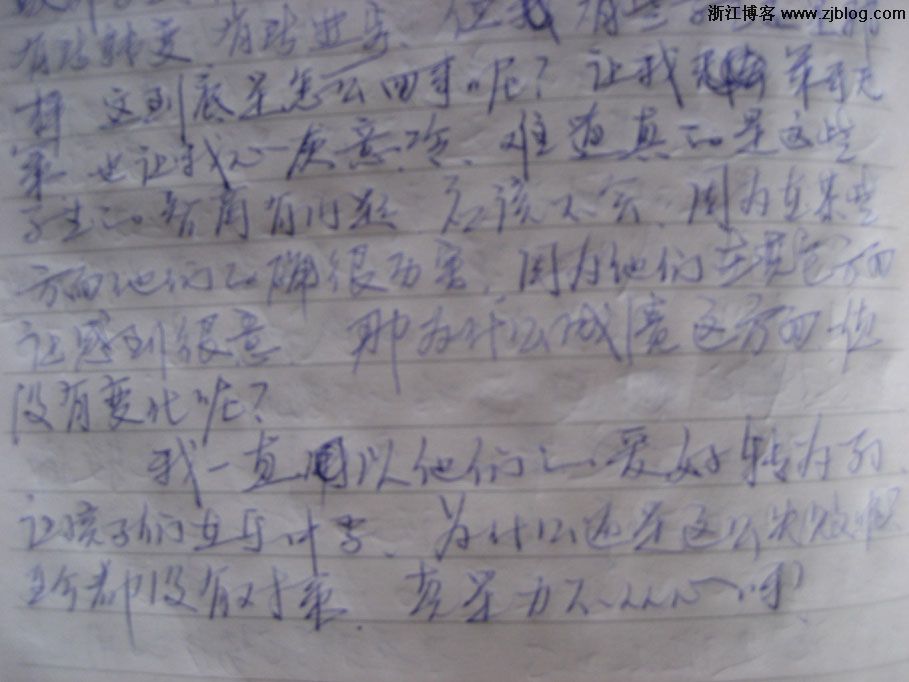 浙江博客 www.zjblog.com
有所转变，有所进步、但我有些
样 这到底是怎么回事呢？让我 束手无
策 也让我心灰意冷、难道真的是这些
学生的智商有问题 应该不会，因为在某些
方面他们的确很厉害，因为他们在其它方面
让感到很意 那为什么成绩这方面一直
没有变化呢？
我一直用以他们的爱好转为
让孩子们 为什么还是这么失败呢
至今都没有对策，真是力不从心呀？